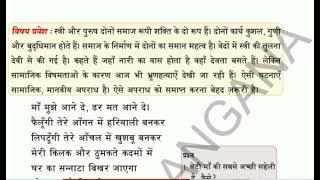 विषय प्रवेश : स्त्री और पुरुष दोनों समाज रूपी शक्ति के दो रूप हैं। दोनों कार्य कुशल, गुणी
और बुद्धिमान होते हैं। समाज के निर्माण में दोनों का समान महत्व है। वेदों में स्त्री की तुलना
देवी से की गई है। कहते हैं जहाँ नारी का वास होता है वहाँ देवता बसते हैं। लेकिन
सामाजिक विषमताओं के कारण आज भी भ्रूणहत्याएँ देखी जा रही हैं। ऐसी घटनाएँ
सामाजिक, मानवीय अपराध है। ऐसे अपराध को समाप्त करना बेहद जरूरी है।
माँ मुझे आने दे, डर मत आने दे।
फैलूँगी तेरे आँगन में हरियाली बनकर
लिपटूँगी तेरे आँचल में खुशबू बनकर
मेरी किलक और ठुमकते कदमों में
घर का सन्नाटा बिखर जाएगा
प्रश्न
1. बेटी माँ की सबसे अच्छी सहेली
है, कैसे?
ANGAMA